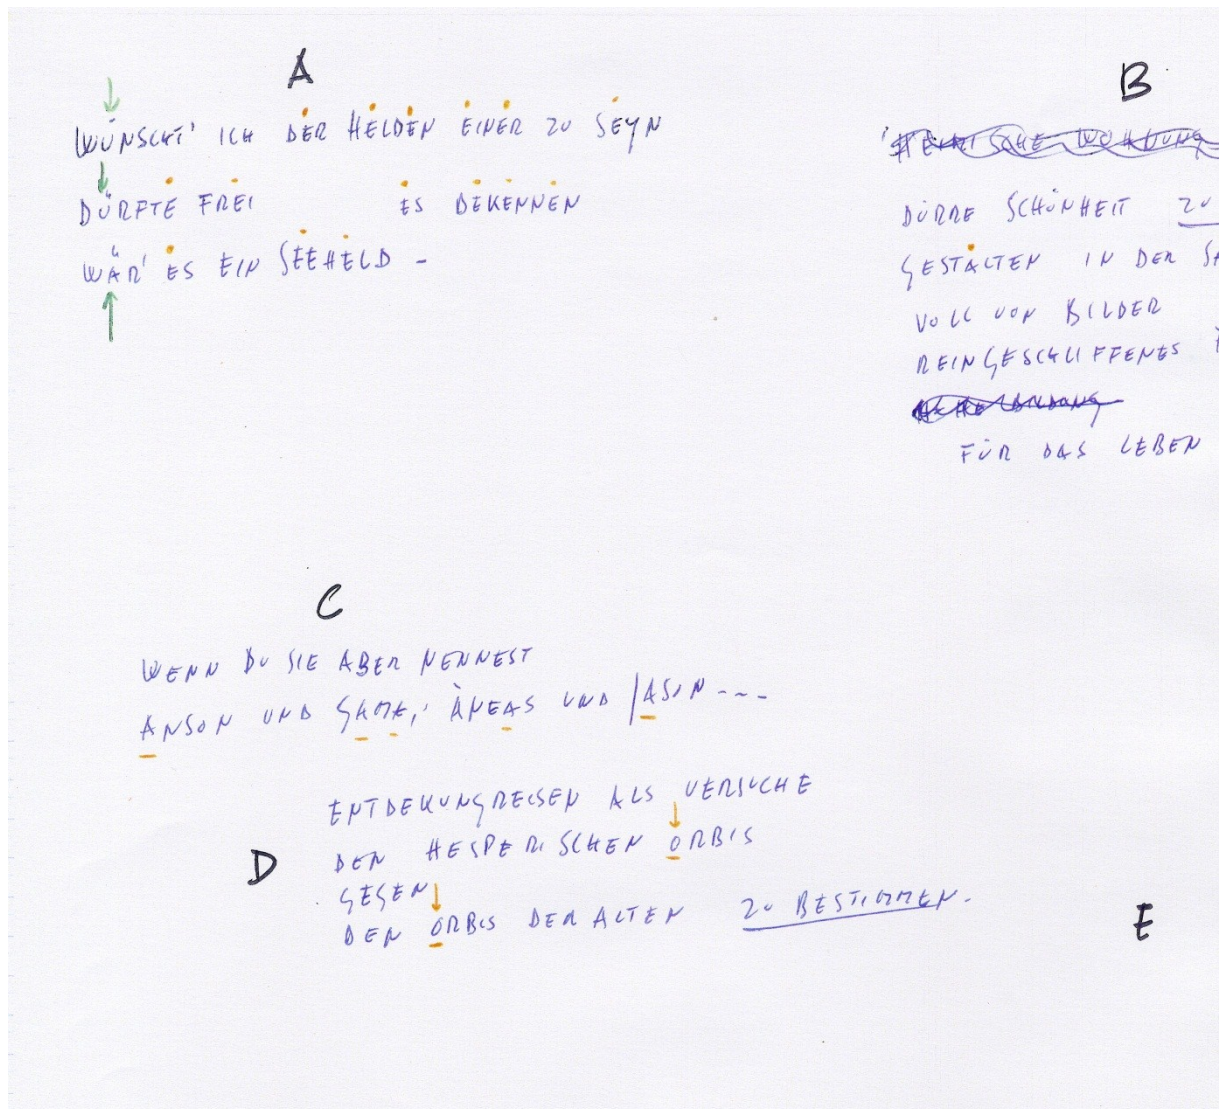 A
WÜNSCHT' ICH DER HELDEN EINER ZU SEYN
DÜRFTE FREI ES BEKENNEN
WÄR' ES EIN SEEHELD -
B
DÜRRE SCHÖNHEIT ZU
GESTALTEN IN DER
VOLL VON BILDER
REINGESCHLIFFENES
FÜR DAS LEBEN
C
WENN DU SIE ABER NENNEST
ANSON UND GAMA, ÄNEAS UND JASON ----
D
ENTDEKUNGREISEN ALS VERSUCHE
DEN HESPERISCHEN ORBIS
GEGEN
DEN ORBIS DER ALTEN ZU BESTIMMEN.
E